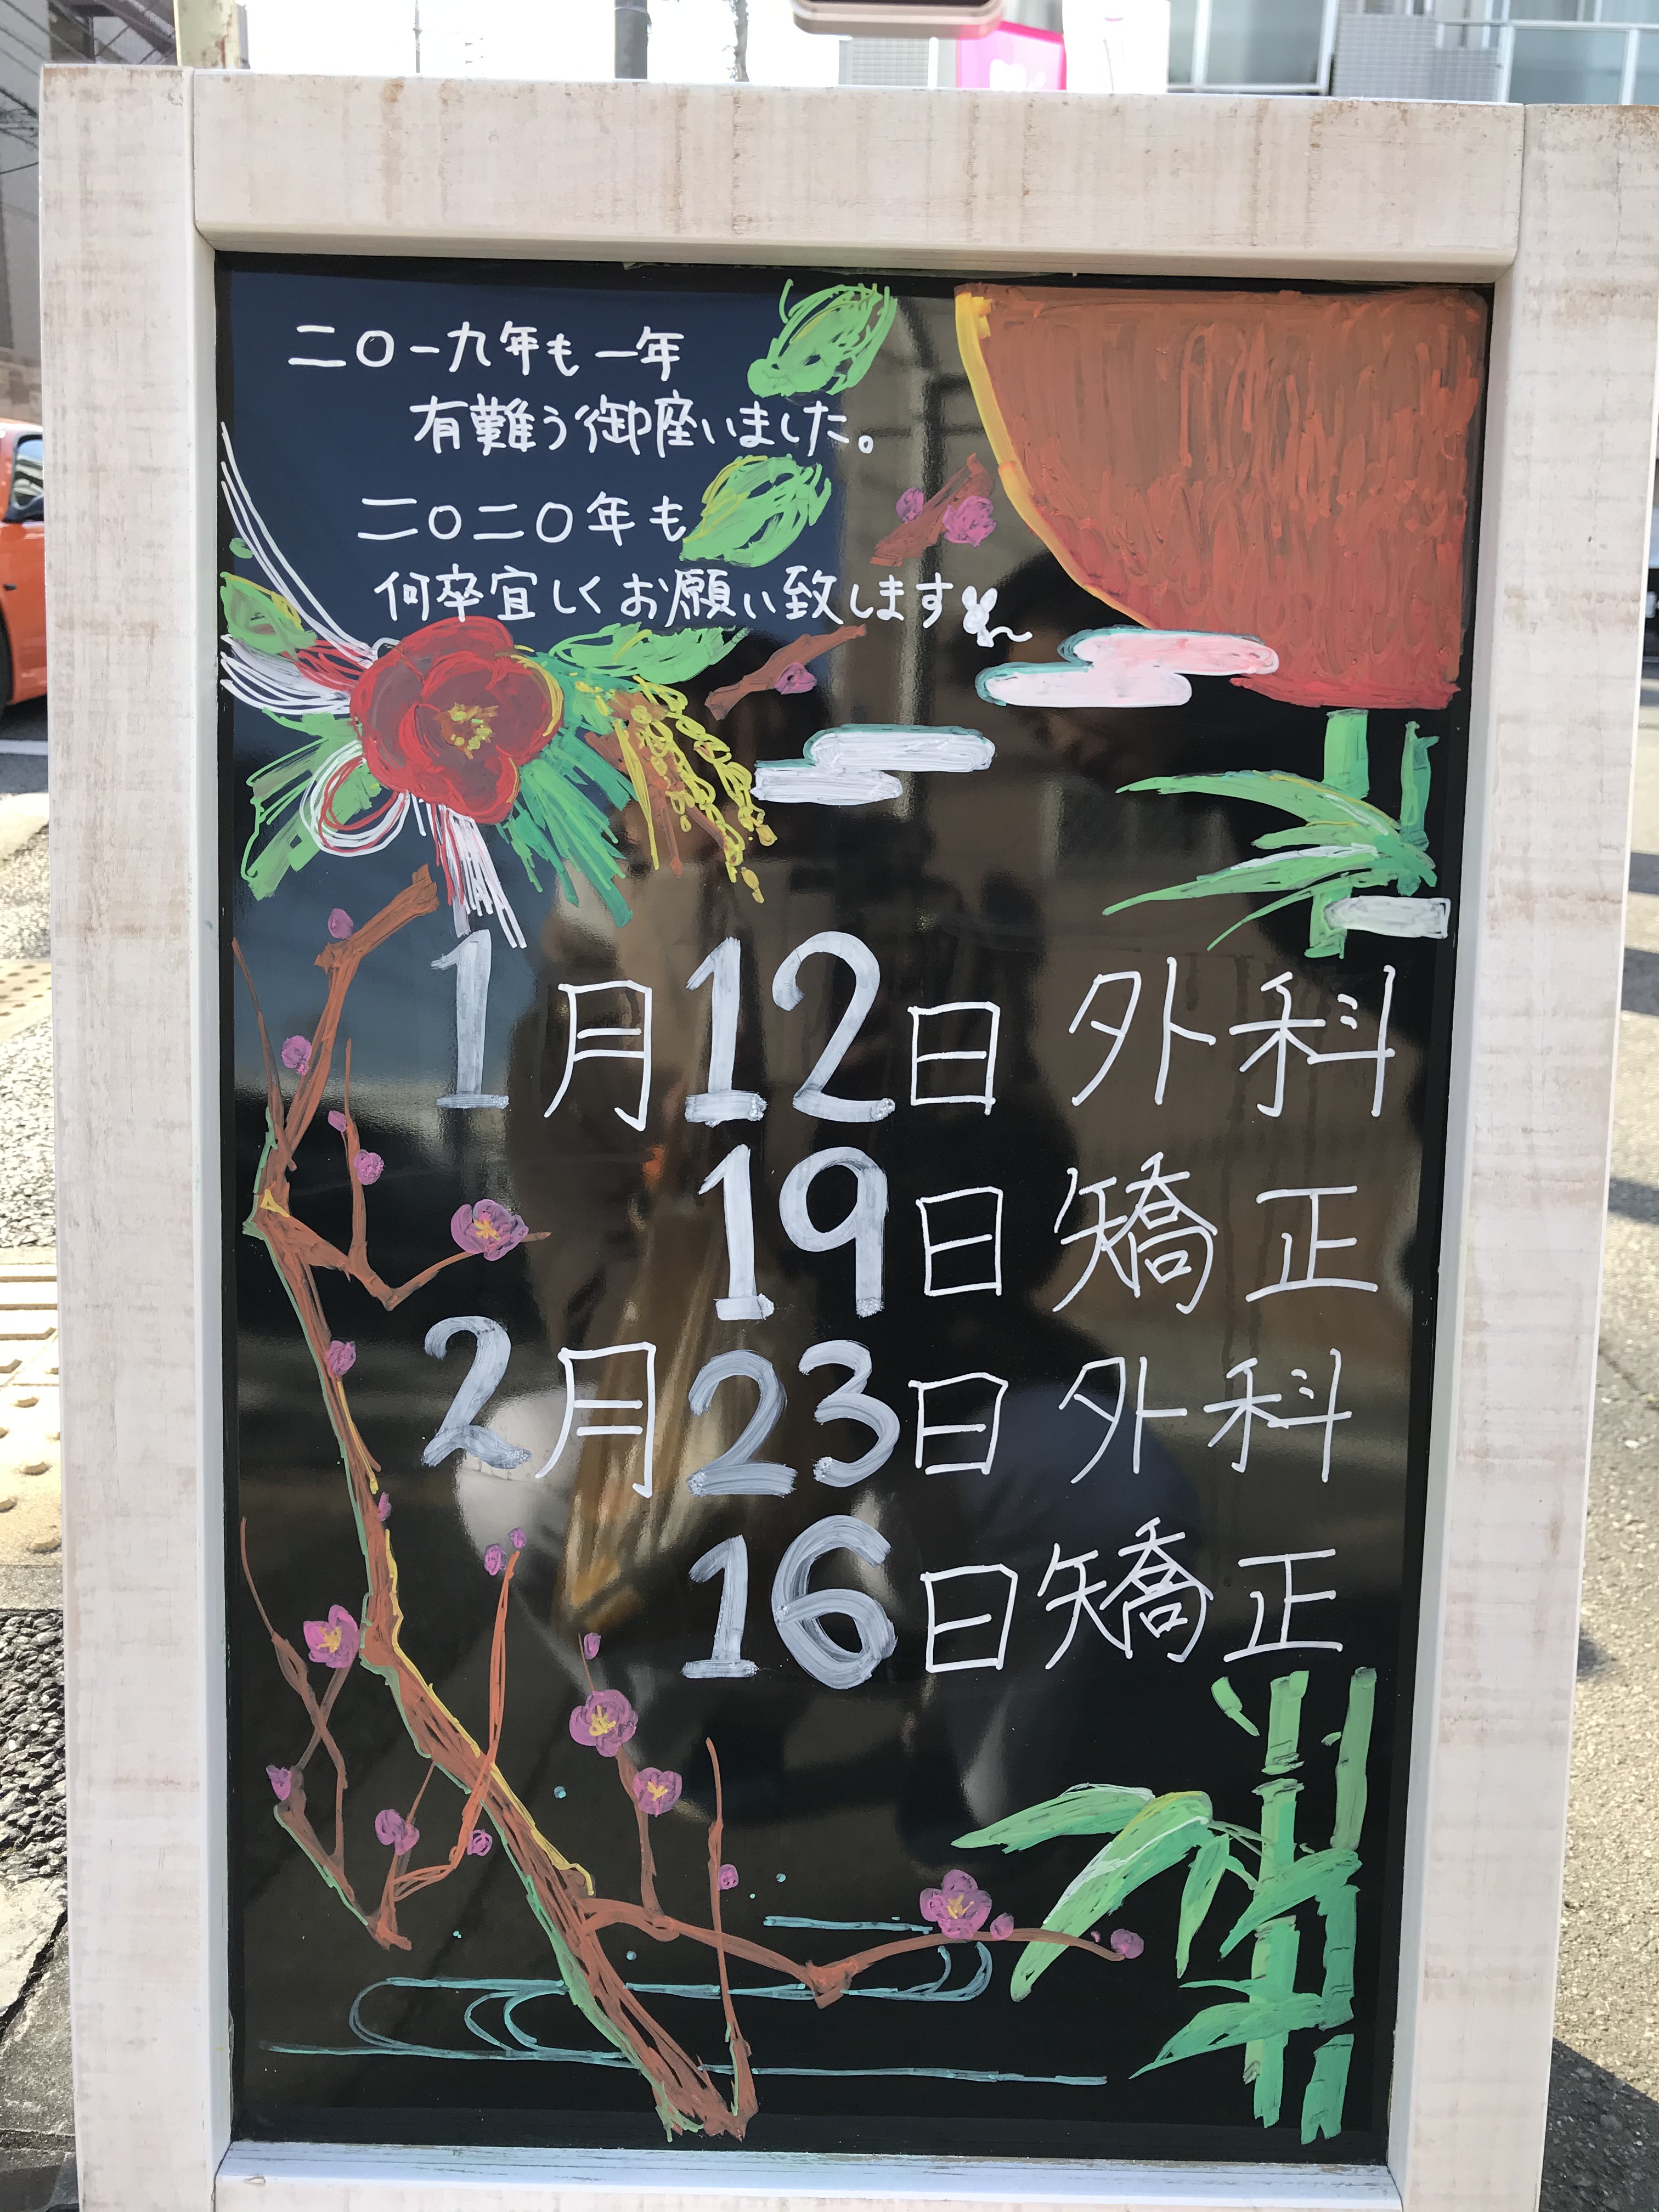 二〇一九年も一年
有難う御座いました。
二〇二〇年も
何卒宜しくお願い致します
1月12日 外科
19日 矯正
2月23日 外科
16日 矯正